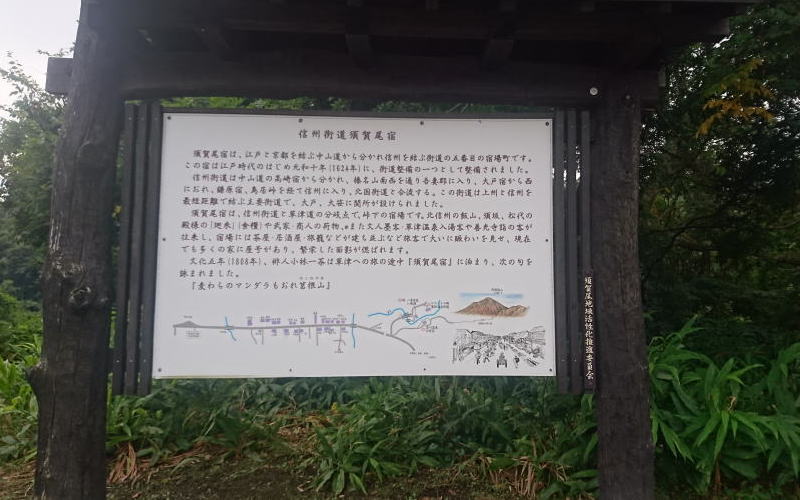 信州街道須賀尾宿
須賀尾宿は、江戸と京都を結ぶ中山道から分かれ信州を結ぶ街道の五番目の宿場町です。
この宿は江戸時代のはじめ元和十年(1624年)に、街道整備の一つとして整備されました。
信州街道は中山道の高崎宿から分かれ、榛名山南西を通り吾妻郡に入り、大戸宿から西
におれ、鎌原宿、鳥居峠を経て信州に入り、北国街道と合流する。この街道は上州と信州を
最短距離で結ぶ主要街道で、大戸、大笹に関所が設けられました。
須賀尾宿は、信州街道と草津道の分岐点で、峠下の宿場です。北信州の飯山、須坂、松代の
殿様の「廻米」(食糧)や武家・商人の荷物、また文人墨客・草津温泉入湯客や善光寺詣の客が
往来し、宿場には茶屋・居酒屋・旅籠などが建ち並ぶなど旅客で大いに賑わいを見せ、現在
でも多くの家に屋号があり、繁栄した面影が偲ばれます。
文化五年(1808年)、俳人小林一茶は草津への旅の途中『須賀尾宿』に泊まり、次の句を
詠まれました。
『麦わらのマンダラもおれ筥根山』
須賀尾地域活性化推進委員会